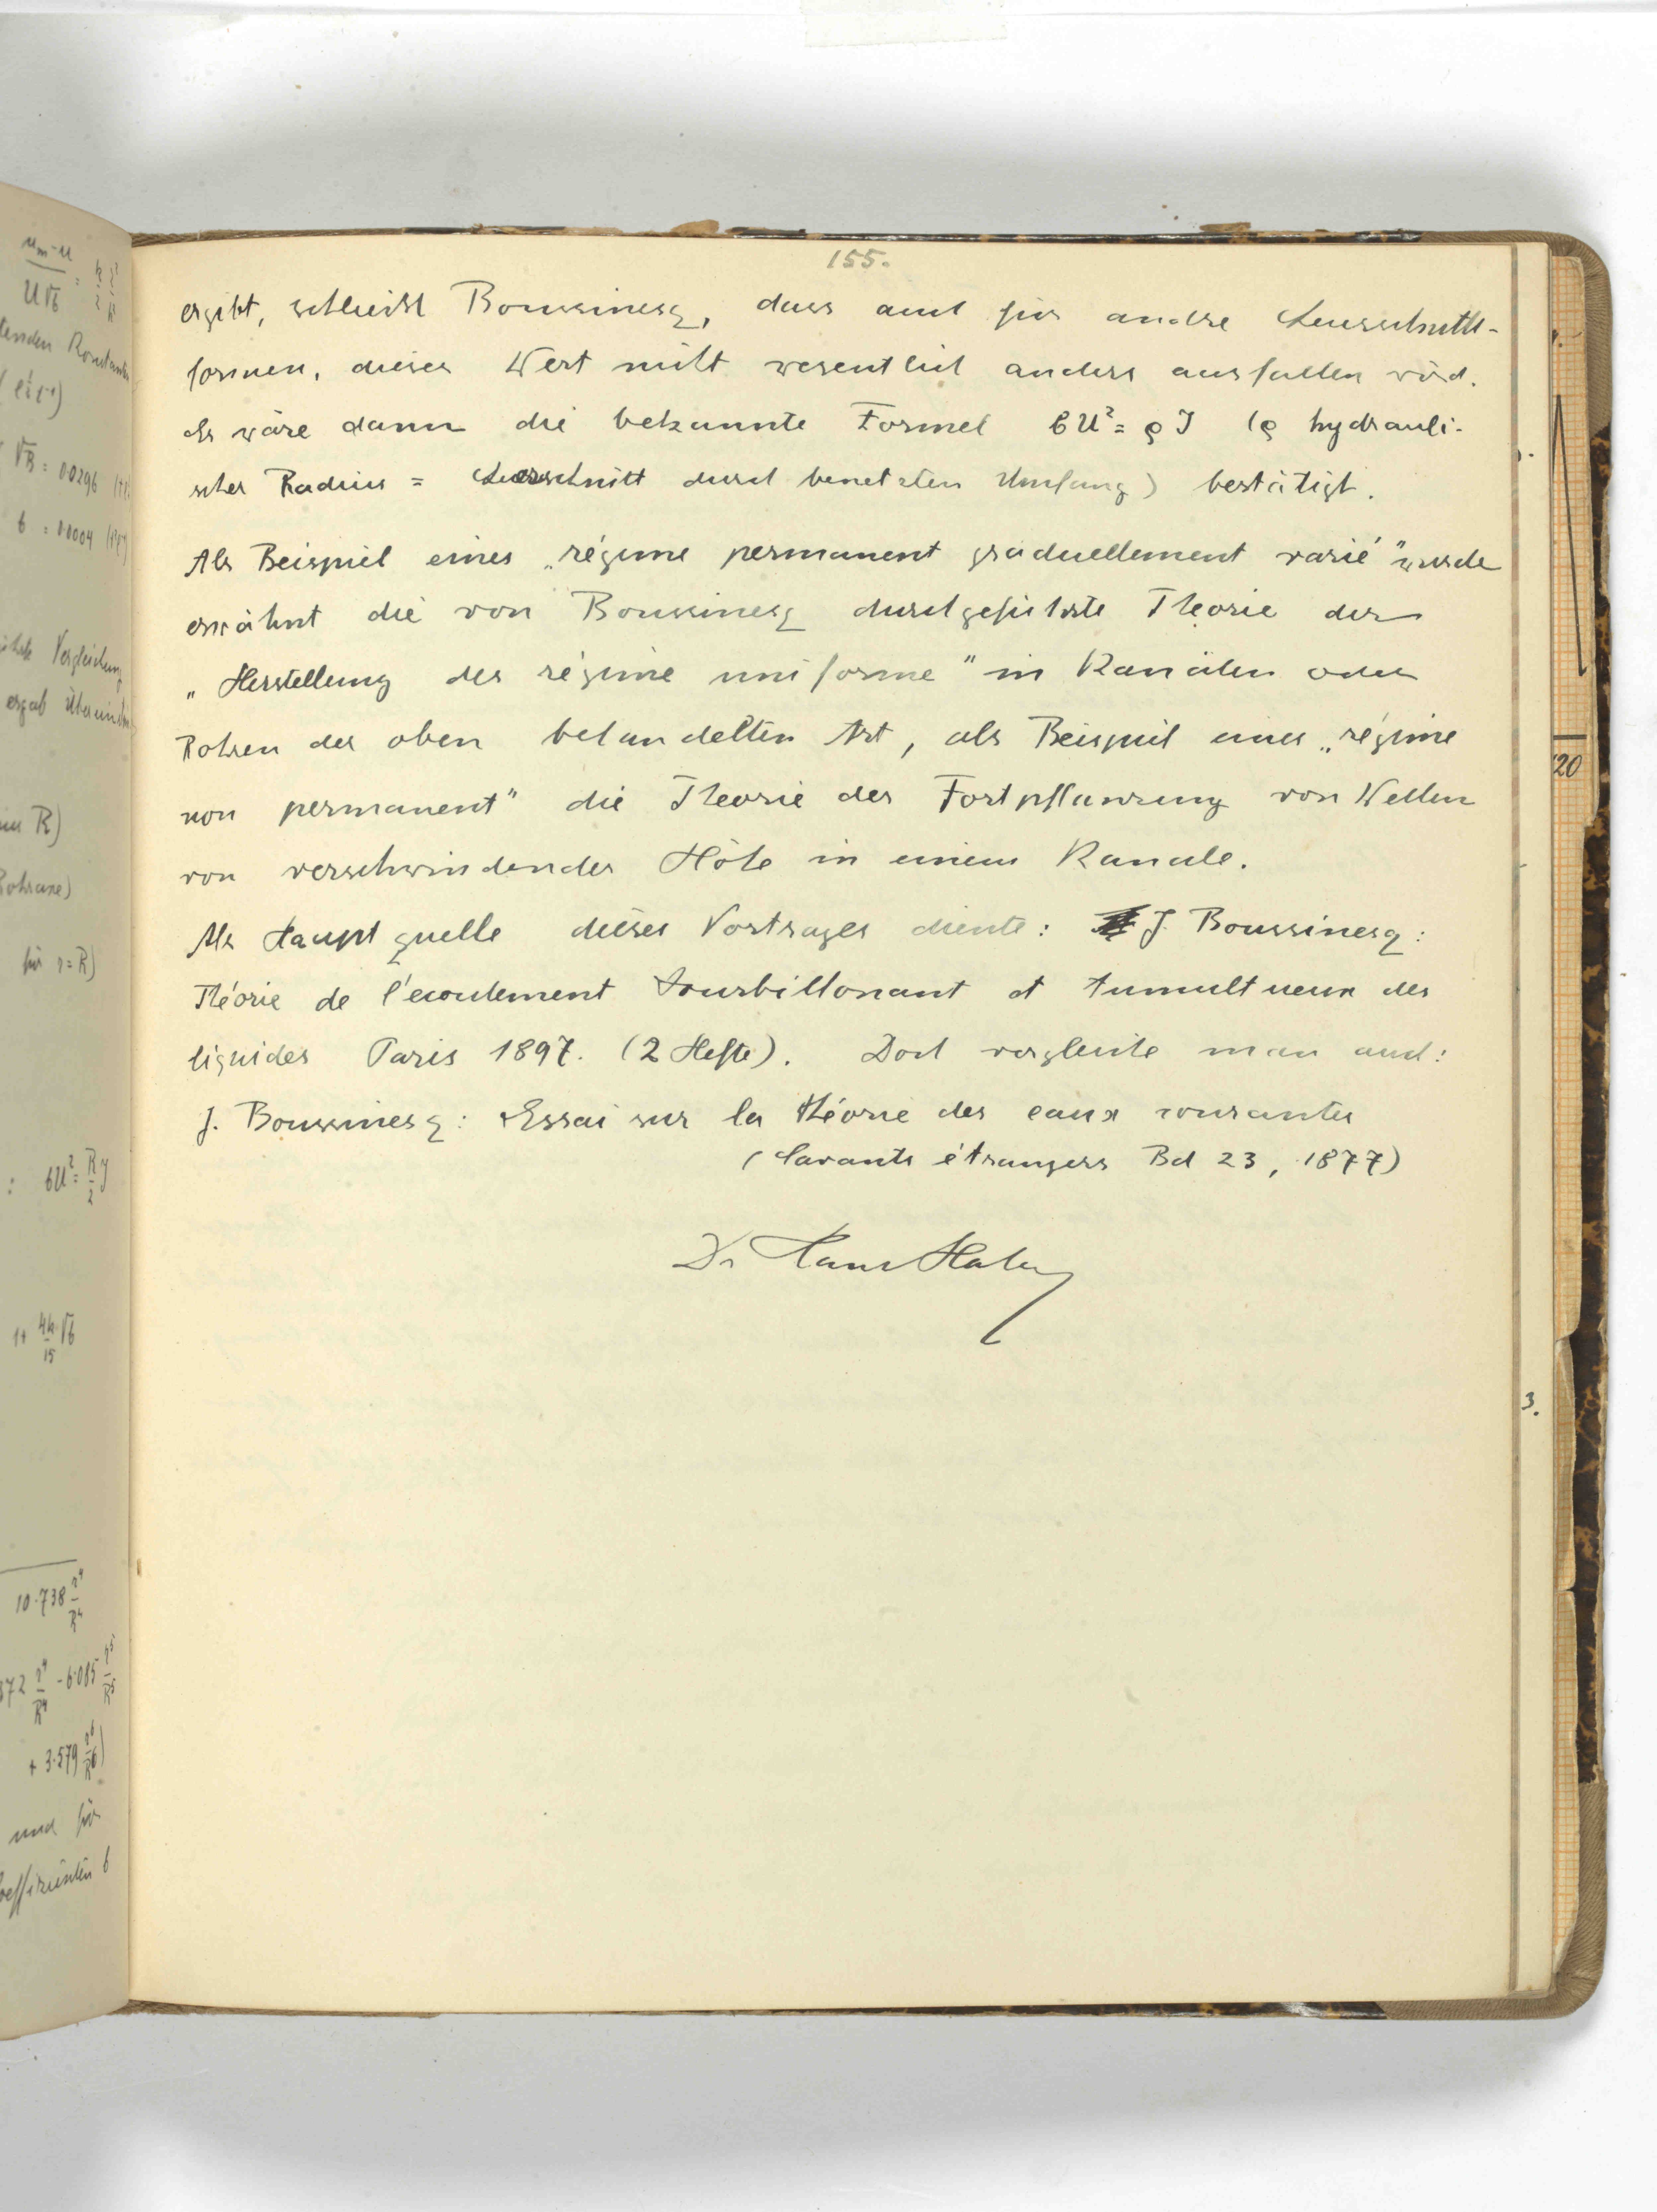 155.
ergibt, schließt Boussinesq, dass auch für andre Querschnitts-
formen, dieser Wert nicht wesentlich anders ausfallen wird.
Es wäre dann die bekannte Formel bU² = ϱ J (ϱ hydrauli-
scher Radius = Querschnitt durch benetzten Umfang) bestätigt.
Als Beispiel eines „régime permanent graduellement varié" wurde
erwähnt die von Boussinesq durchgeführte Theorie der
„Herstellung des régime uniforme" in Kanälen oder
Rohren der oben behandelten Art, als Beispiel eines „régime
non permanent" die Theorie der Fortpflanzung von Wellen
von verschwindender Höhe in einem Kanale.
Als Hauptquelle dieses Vortrages diente: J. Boussinesq:
Théorie de l'écoulement tourbillonant et tumultueux des
liquides Paris 1897. (2 Hefte). Doch vergleiche man auch:
J. Boussinesq: Essai sur la théorie des eaux courantes
(Savants étrangers Bd 23, 1877)
Dr Hans Hahn
um-u
U√b
tenden Konstanten
√B = 0.0296
b = 0.0004
Vergleichung
ergab
R)
Rohraxe)
für r=R)
: bU² = R/2 J
1+ 4k/15 √b
10.738 r⁴/R⁴
372 r⁴/R⁴ - 6.085 r⁵/R⁵
+ 3.579 r⁶/R⁶)
und für
b
20
3.